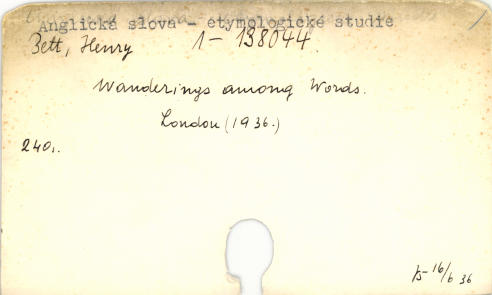 Anglická slova - etymologické studie
Bett, Henry 1-138044.
Wanderings among Words.
London (1936.)
240,.
16/6 36